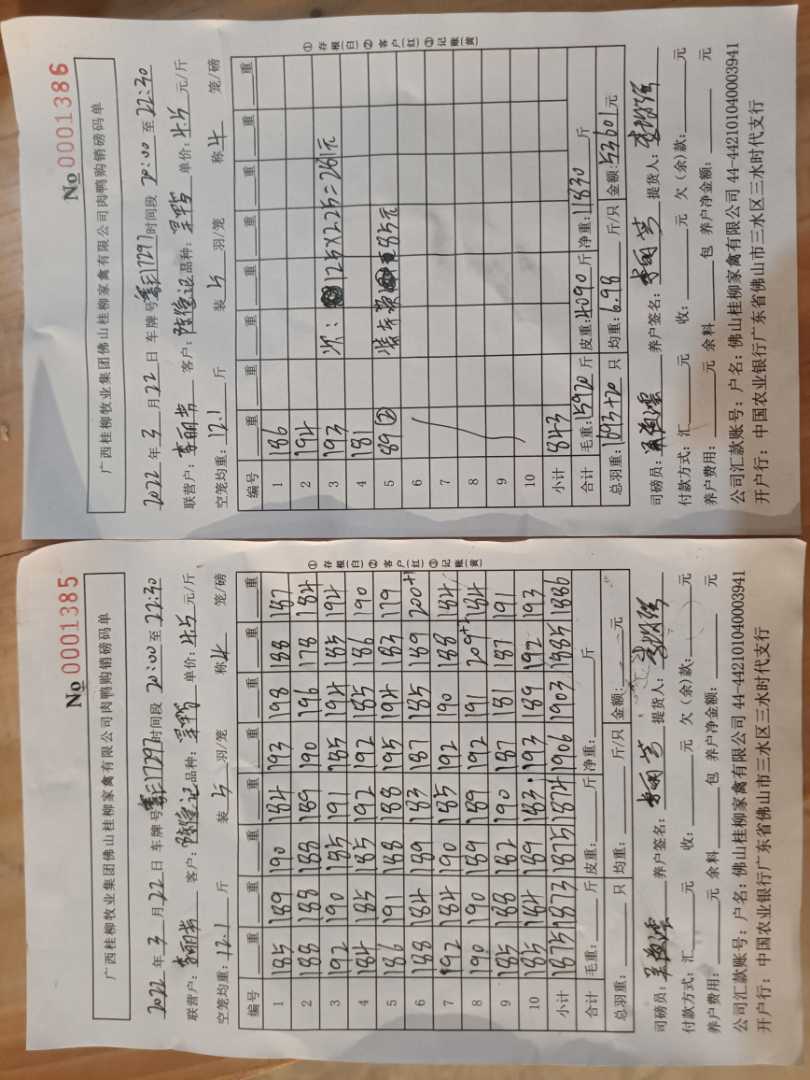 No 0001385
广西桂柳牧业集团佛山桂柳家禽有限公司肉鸭购销磅码单
2022 年 3 月 22 日 车牌号 17297 时间段 20:00 至 22:30
联营户: 李丽芳 客户: 品种: 单价: 4.5 元/斤
空笼均重: 12.1 斤 装 5 羽/笼 称 4 笼/磅
编号 重 重 重 重 重 重 重 重
1 185 189 190 184 193 198 188 187
2 188 188 188 189 190 196 178 184
3 192 190 185 191 185 194 185 194
4 184 185 185 192 192 185 186 190
5 186 191 188 188 195 194 183 179
6 188 184 189 183 187 185 189 200+1
7 192 184 190 185 192 190 188 184
8 190 190 189 189 192 191 200+3 184
9 185 188 182 190 187 181 187 191
10 185 184 189 183 193 189 192 193
小计 1875 1873 1875 1874 1906 1903 1885 1886
合计 毛重: 斤 皮重: 斤 净重: 斤
总羽重: 只 均重: 斤/只 金额: 元
司磅员: 养户签名: 李丽芳 提货人:
付款方式: 汇 元 收: 元 欠(余)款: 元
养户费用: 元 余料 包 养户净金额: 元
公司汇款账号: 户名: 佛山桂柳家禽有限公司 44-442101040003941
开户行: 中国农业银行广东省佛山市三水区三水时代支行
①存根(白)②客户(红)③记账(黄)
No 0001386
广西桂柳牧业集团佛山桂柳家禽有限公司肉鸭购销磅码单
2022 年 3 月 22 日 车牌号 17297 时间段 20:00 至 22:30
联营户: 李丽芳 客户: 品种: 单价: 4.5 元/斤
空笼均重: 12.1 斤 装 5 羽/笼 称 4 笼/磅
编号 重 重 重 重 重 重 重 重
1 186
2 194
3 193 125×2.25=281元
4 181
5 89② 装车费 85元
6
7
8
9
10
小计 843
合计 毛重: 15920 斤 皮重: 4090 斤 净重: 11830 斤
总羽重: 1693+20 只 均重: 6.98 斤/只 金额: 53601 元
司磅员: 养户签名: 李丽芳 提货人:
付款方式: 汇 元 收: 元 欠(余)款: 元
养户费用: 元 余料 包 养户净金额: 元
公司汇款账号: 户名: 佛山桂柳家禽有限公司 44-442101040003941
开户行: 中国农业银行广东省佛山市三水区三水时代支行
①存根(白)②客户(红)③记账(黄)